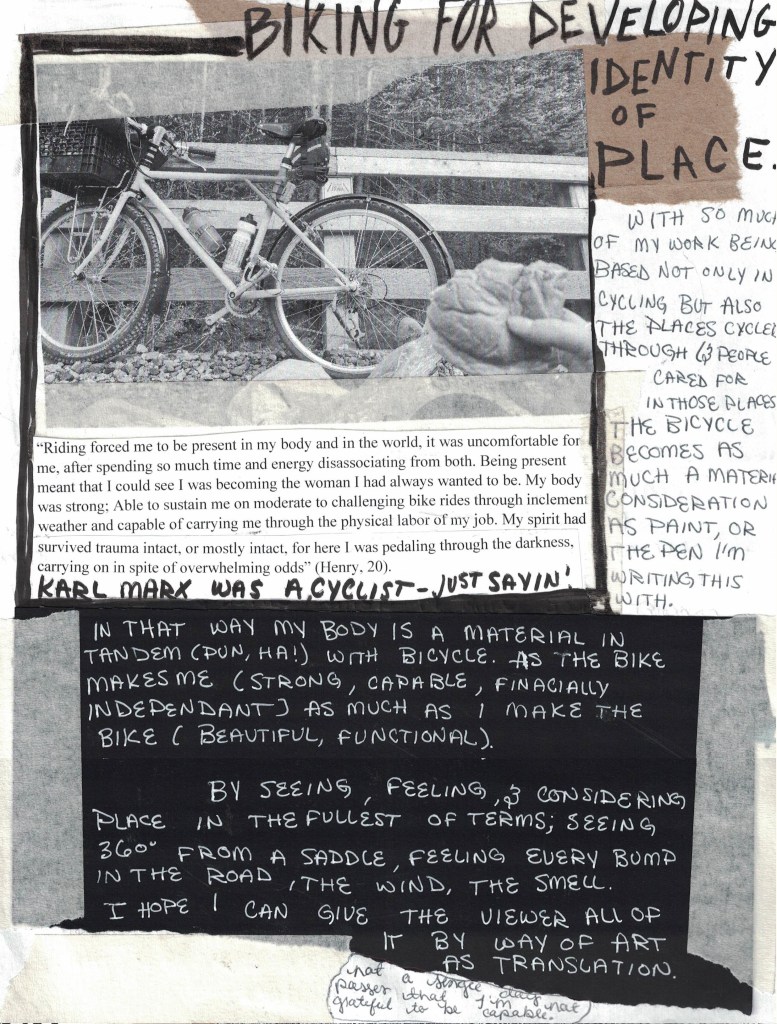 BIKING FOR DEVELOPING
IDENTITY
OF
PLACE.
WITH SO MUCH
OF MY WORK BEING
BASED NOT ONLY IN
CYCLING BUT ALSO
THE PLACES CYCLED
THROUGH & PEOPLE
CARED FOR
IN THOSE PLACES
THE BICYCLE
BECOMES AS
MUCH A MATERIAL
CONSIDERATION
AS PAINT, OR
THE PEN I'M
WRITING THIS
WITH.
“Riding forced me to be present in my body and in the world, it was uncomfortable for
me, after spending so much time and energy disassociating from both. Being present
meant that I could see I was becoming the woman I had always wanted to be. My body
was strong; Able to sustain me on moderate to challenging bike rides through inclement
weather and capable of carrying me through the physical labor of my job. My spirit had
survived trauma intact, or mostly intact, for here I was pedaling through the darkness,
carrying on in spite of overwhelming odds” (Henry, 20).
KARL MARX WAS A CYCLIST - JUST SAYIN'
IN THAT WAY MY BODY IS A MATERIAL IN
TANDEM (PUN, HA!) WITH BICYCLE. AS THE BIKE
MAKES ME (STRONG, CAPABLE, FINACIALLY
INDEPENDANT) AS MUCH AS I MAKE THE
BIKE (BEAUTIFUL, FUNCTIONAL).
BY SEEING, FEELING, & CONSIDERING
PLACE IN THE FULLEST OF TERMS; SEEING
360° FROM A SADDLE, FEELING EVERY BUMP
IN THE ROAD, THE WIND, THE SMELL.
I HOPE I CAN GIVE THE VIEWER ALL OF
IT BY WAY OF ART
AS TRANSLATION.
not a single day
passes that I'm not
grateful to be capable.